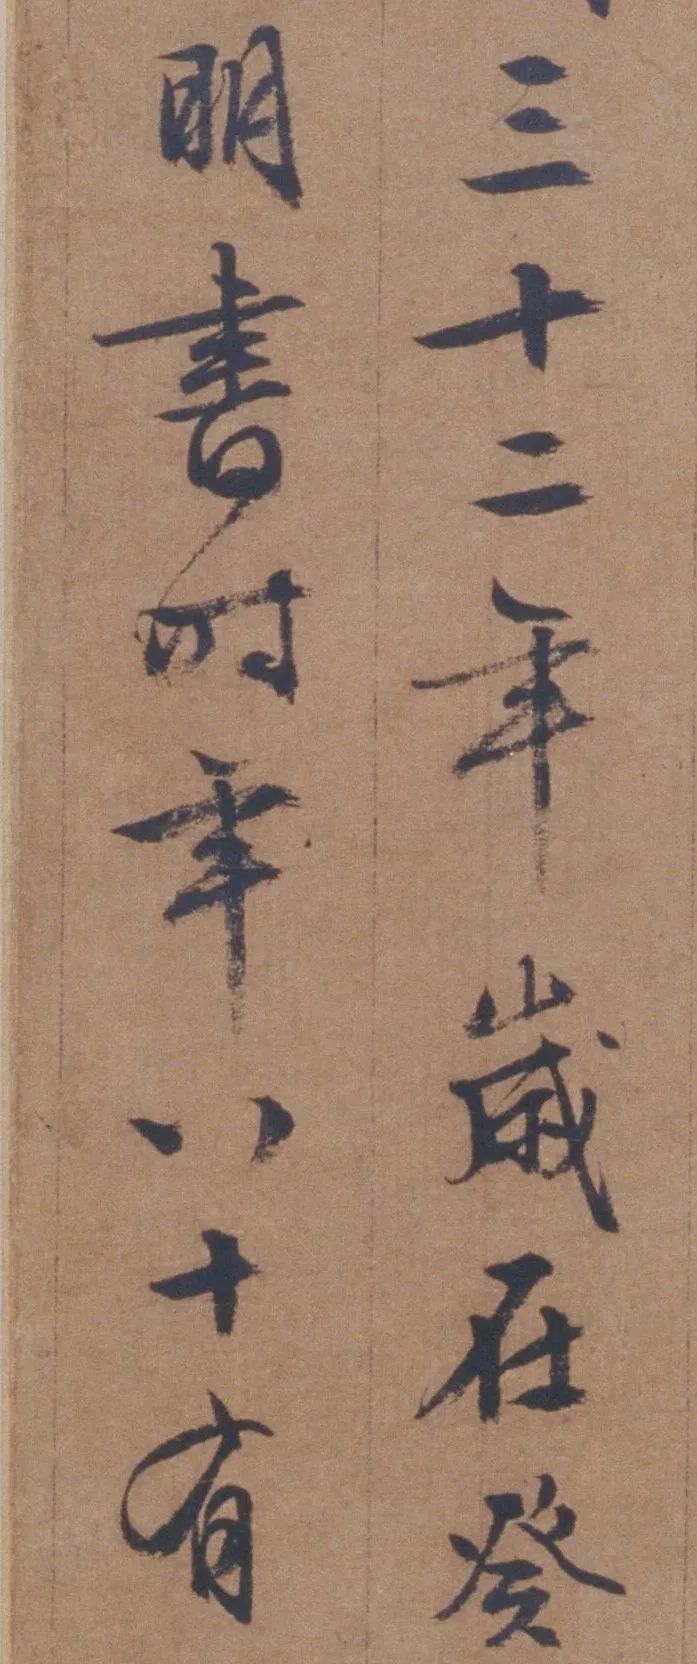 三十二年歲在癸
明書時年八十有